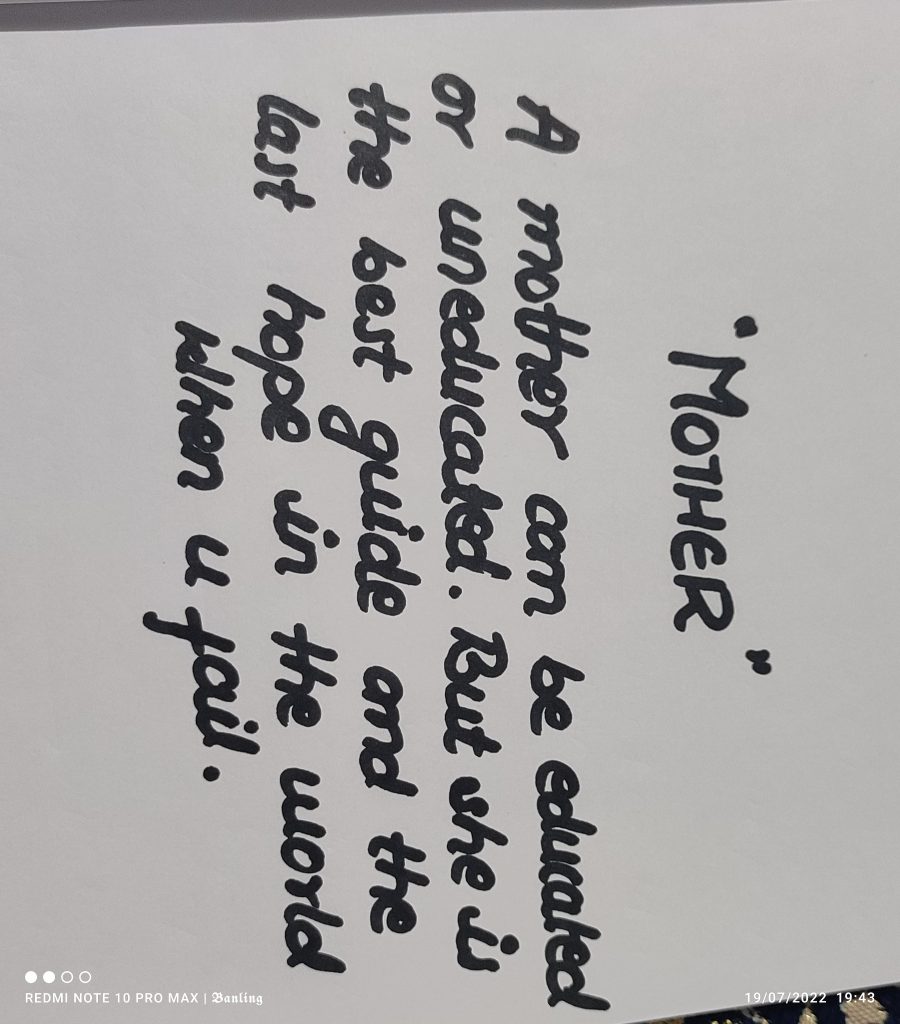 "MOTHER"
A mother can be educated
or uneducated. But she is
the best guide and the
last hope in the world
when u fail.
REDMI NOTE 10 PRO MAX | Banling
19/07/2022 19:43